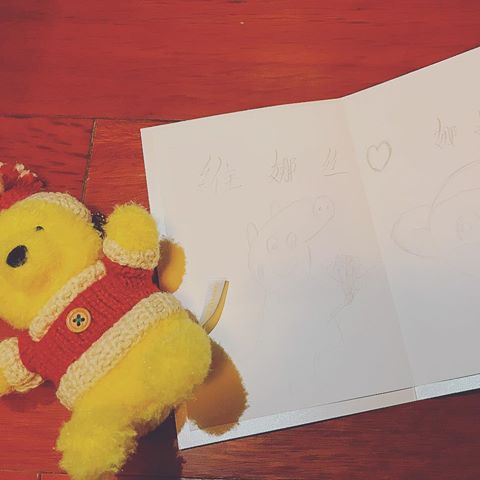 维娜丝♡娜